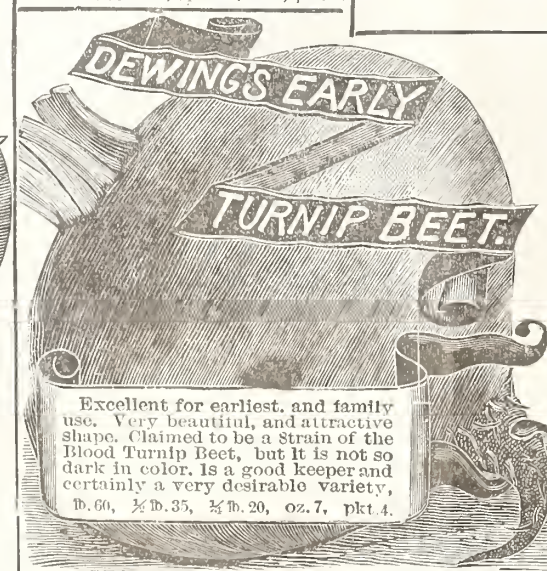 DEWING'S EARLY
TURNIP BEET.
Excellent for earliest. and family
use. Very beautiful, and attractive
shape. Claimed to be a Strain of the
Blood Turnip Beet, but it is not so
dark in color. Is a good keeper and
certainly a very desirable variety,
lb. 60, ½ lb. 35, ¼ lb. 20, oz. 7, pkt 4.